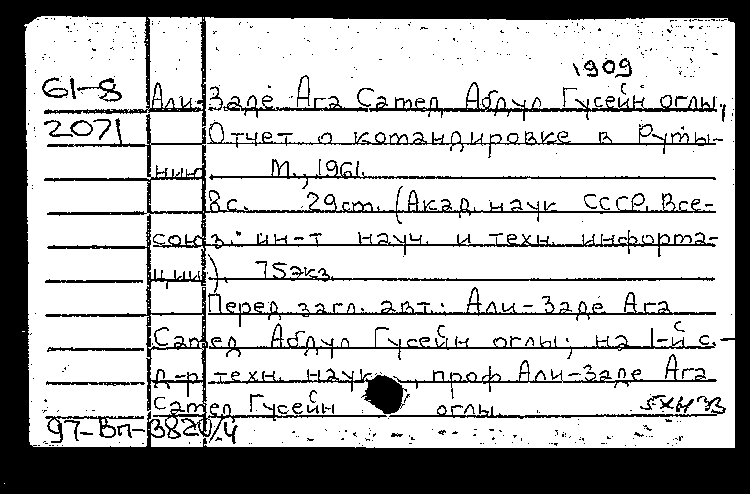 1909
61-8 Али-Заде Ага Самед Абдул Гусейн оглы,
2071 Отчет о командировке в Румы-
нию. М., 1961.
8с. 29см. (Акад. наук СССР. Все-
союз. ин-т науч. и техн. информа-
ции). 75экз.
Перед загл. авт.: Али-Заде Ага
Самед Абдул Гусейн оглы; на 1-й с.-
д-р техн. наук, проф. Али-Заде Ага
Самед Гусейн оглы.
97-Вп-3820/4